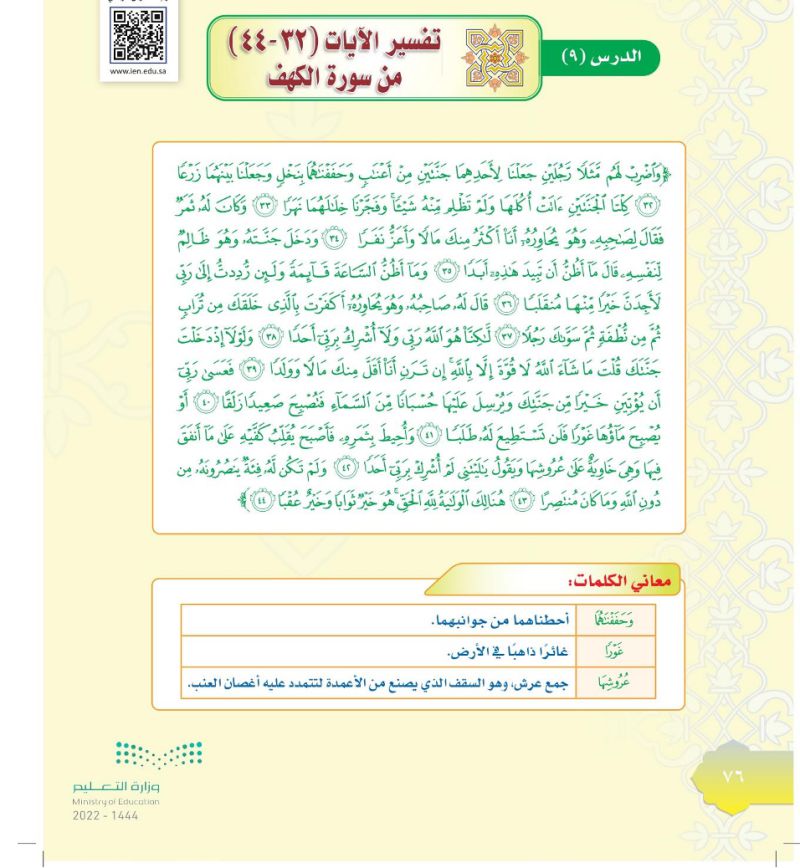 www.ien.edu.sa
الدرس (٩)
تفسير الآيات (٣٢-٤٤)
من سورة الكهف
﴿وَٱضۡرِبۡ لَهُم مَّثَلٗا رَّجُلَيۡنِ جَعَلۡنَا لِأَحَدِهِمَا جَنَّتَيۡنِ مِنۡ أَعۡنَٰبٖ وَحَفَفۡنَٰهُمَا بِنَخۡلٖ وَجَعَلۡنَا بَيۡنَهُمَا زَرۡعٗا
٣٢ كِلۡتَا ٱلۡجَنَّتَيۡنِ ءَاتَتۡ أُكُلَهَا وَلَمۡ تَظۡلِم مِّنۡهُ شَيۡـٔٗاۚ وَفَجَّرۡنَا خِلَٰلَهُمَا نَهَرٗا ٣٣ وَكَانَ لَهُۥ ثَمَرٞ
فَقَالَ لِصَٰحِبِهِۦ وَهُوَ يُحَاوِرُهُۥٓ أَنَا۠ أَكۡثَرُ مِنكَ مَالٗا وَأَعَزُّ نَفَرٗا ٣٤ وَدَخَلَ جَنَّتَهُۥ وَهُوَ ظَالِمٞ
لِّنَفۡسِهِۦ قَالَ مَآ أَظُنُّ أَن تَبِيدَ هَٰذِهِۦٓ أَبَدٗا ٣٥ وَمَآ أَظُنُّ ٱلسَّاعَةَ قَآئِمَةٗ وَلَئِن رُّدِدتُّ إِلَىٰ رَبِّي
لَأَجِدَنَّ خَيۡرٗا مِّنۡهَا مُنقَلَبٗا ٣٦ قَالَ لَهُۥ صَاحِبُهُۥ وَهُوَ يُحَاوِرُهُۥٓ أَكَفَرۡتَ بِٱلَّذِي خَلَقَكَ مِن تُرَابٖ
ثُمَّ مِن نُّطۡفَةٖ ثُمَّ سَوَّىٰكَ رَجُلٗا ٣٧ لَّٰكِنَّا۠ هُوَ ٱللَّهُ رَبِّي وَلَآ أُشۡرِكُ بِرَبِّيٓ أَحَدٗا ٣٨ وَلَوۡلَآ إِذۡ دَخَلۡتَ
جَنَّتَكَ قُلۡتَ مَا شَآءَ ٱللَّهُ لَا قُوَّةَ إِلَّا بِٱللَّهِۚ إِن تَرَنِ أَنَا۠ أَقَلَّ مِنكَ مَالٗا وَوَلَدٗا ٣٩ فَعَسَىٰ رَبِّيٓ
أَن يُؤۡتِيَنِ خَيۡرٗا مِّن جَنَّتِكَ وَيُرۡسِلَ عَلَيۡهَا حُسۡبَانٗا مِّنَ ٱلسَّمَآءِ فَتُصۡبِحَ صَعِيدٗا زَلَقًا ٤٠ أَوۡ
يُصۡبِحَ مَآؤُهَا غَوۡرٗا فَلَن تَسۡتَطِيعَ لَهُۥ طَلَبٗا ٤١ وَأُحِيطَ بِثَمَرِهِۦ فَأَصۡبَحَ يُقَلِّبُ كَفَّيۡهِ عَلَىٰ مَآ أَنفَقَ
فِيهَا وَهِيَ خَاوِيَةٌ عَلَىٰ عُرُوشِهَا وَيَقُولُ يَٰلَيۡتَنِي لَمۡ أُشۡرِكۡ بِرَبِّيٓ أَحَدٗا ٤٢ وَلَمۡ تَكُن لَّهُۥ فِئَةٞ يَنصُرُونَهُۥ مِن
دُونِ ٱللَّهِ وَمَا كَانَ مُنتَصِرًا ٤٣ هُنَالِكَ ٱلۡوَلَٰيَةُ لِلَّهِ ٱلۡحَقِّۚ هُوَ خَيۡرٞ ثَوَابٗا وَخَيۡرٌ عُقۡبٗا ٤٤﴾
معاني الكلمات:
وَحَفَفۡنَٰهُمَا أحطناهما من جوانبهما.
غَوۡرٗا غائرًا ذاهبًا في الأرض.
عُرُوشِهَا جمع عرش، وهو السقف الذي يصنع من الأعمدة لتتمدد عليه أغصان العنب.
٧٦
وزارة التعليم
Ministry of Education
2022 - 1444